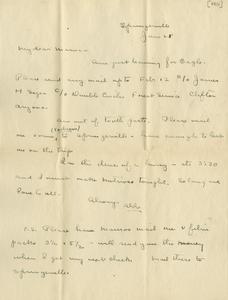 Springerville
Jan 28
My dear Mamma -
Am just leaving for Eagle.
Please send my mail up to Feb. 12 % James
H. % Double Circles Forest Service Clifton
Arizona.
Am out of tooth paste. Please mail
me some to Springerville - have enough to last
me on the trip.
Am in the of a hurry - its 3:30
and I must make Nutrioso tonight. So long and
love to all.
Always, Aldo
P.S. Please have mail me 4 film
packs 3¼ x 5½ - will send you the money
when I get my next check. Mail these to
Springerville.